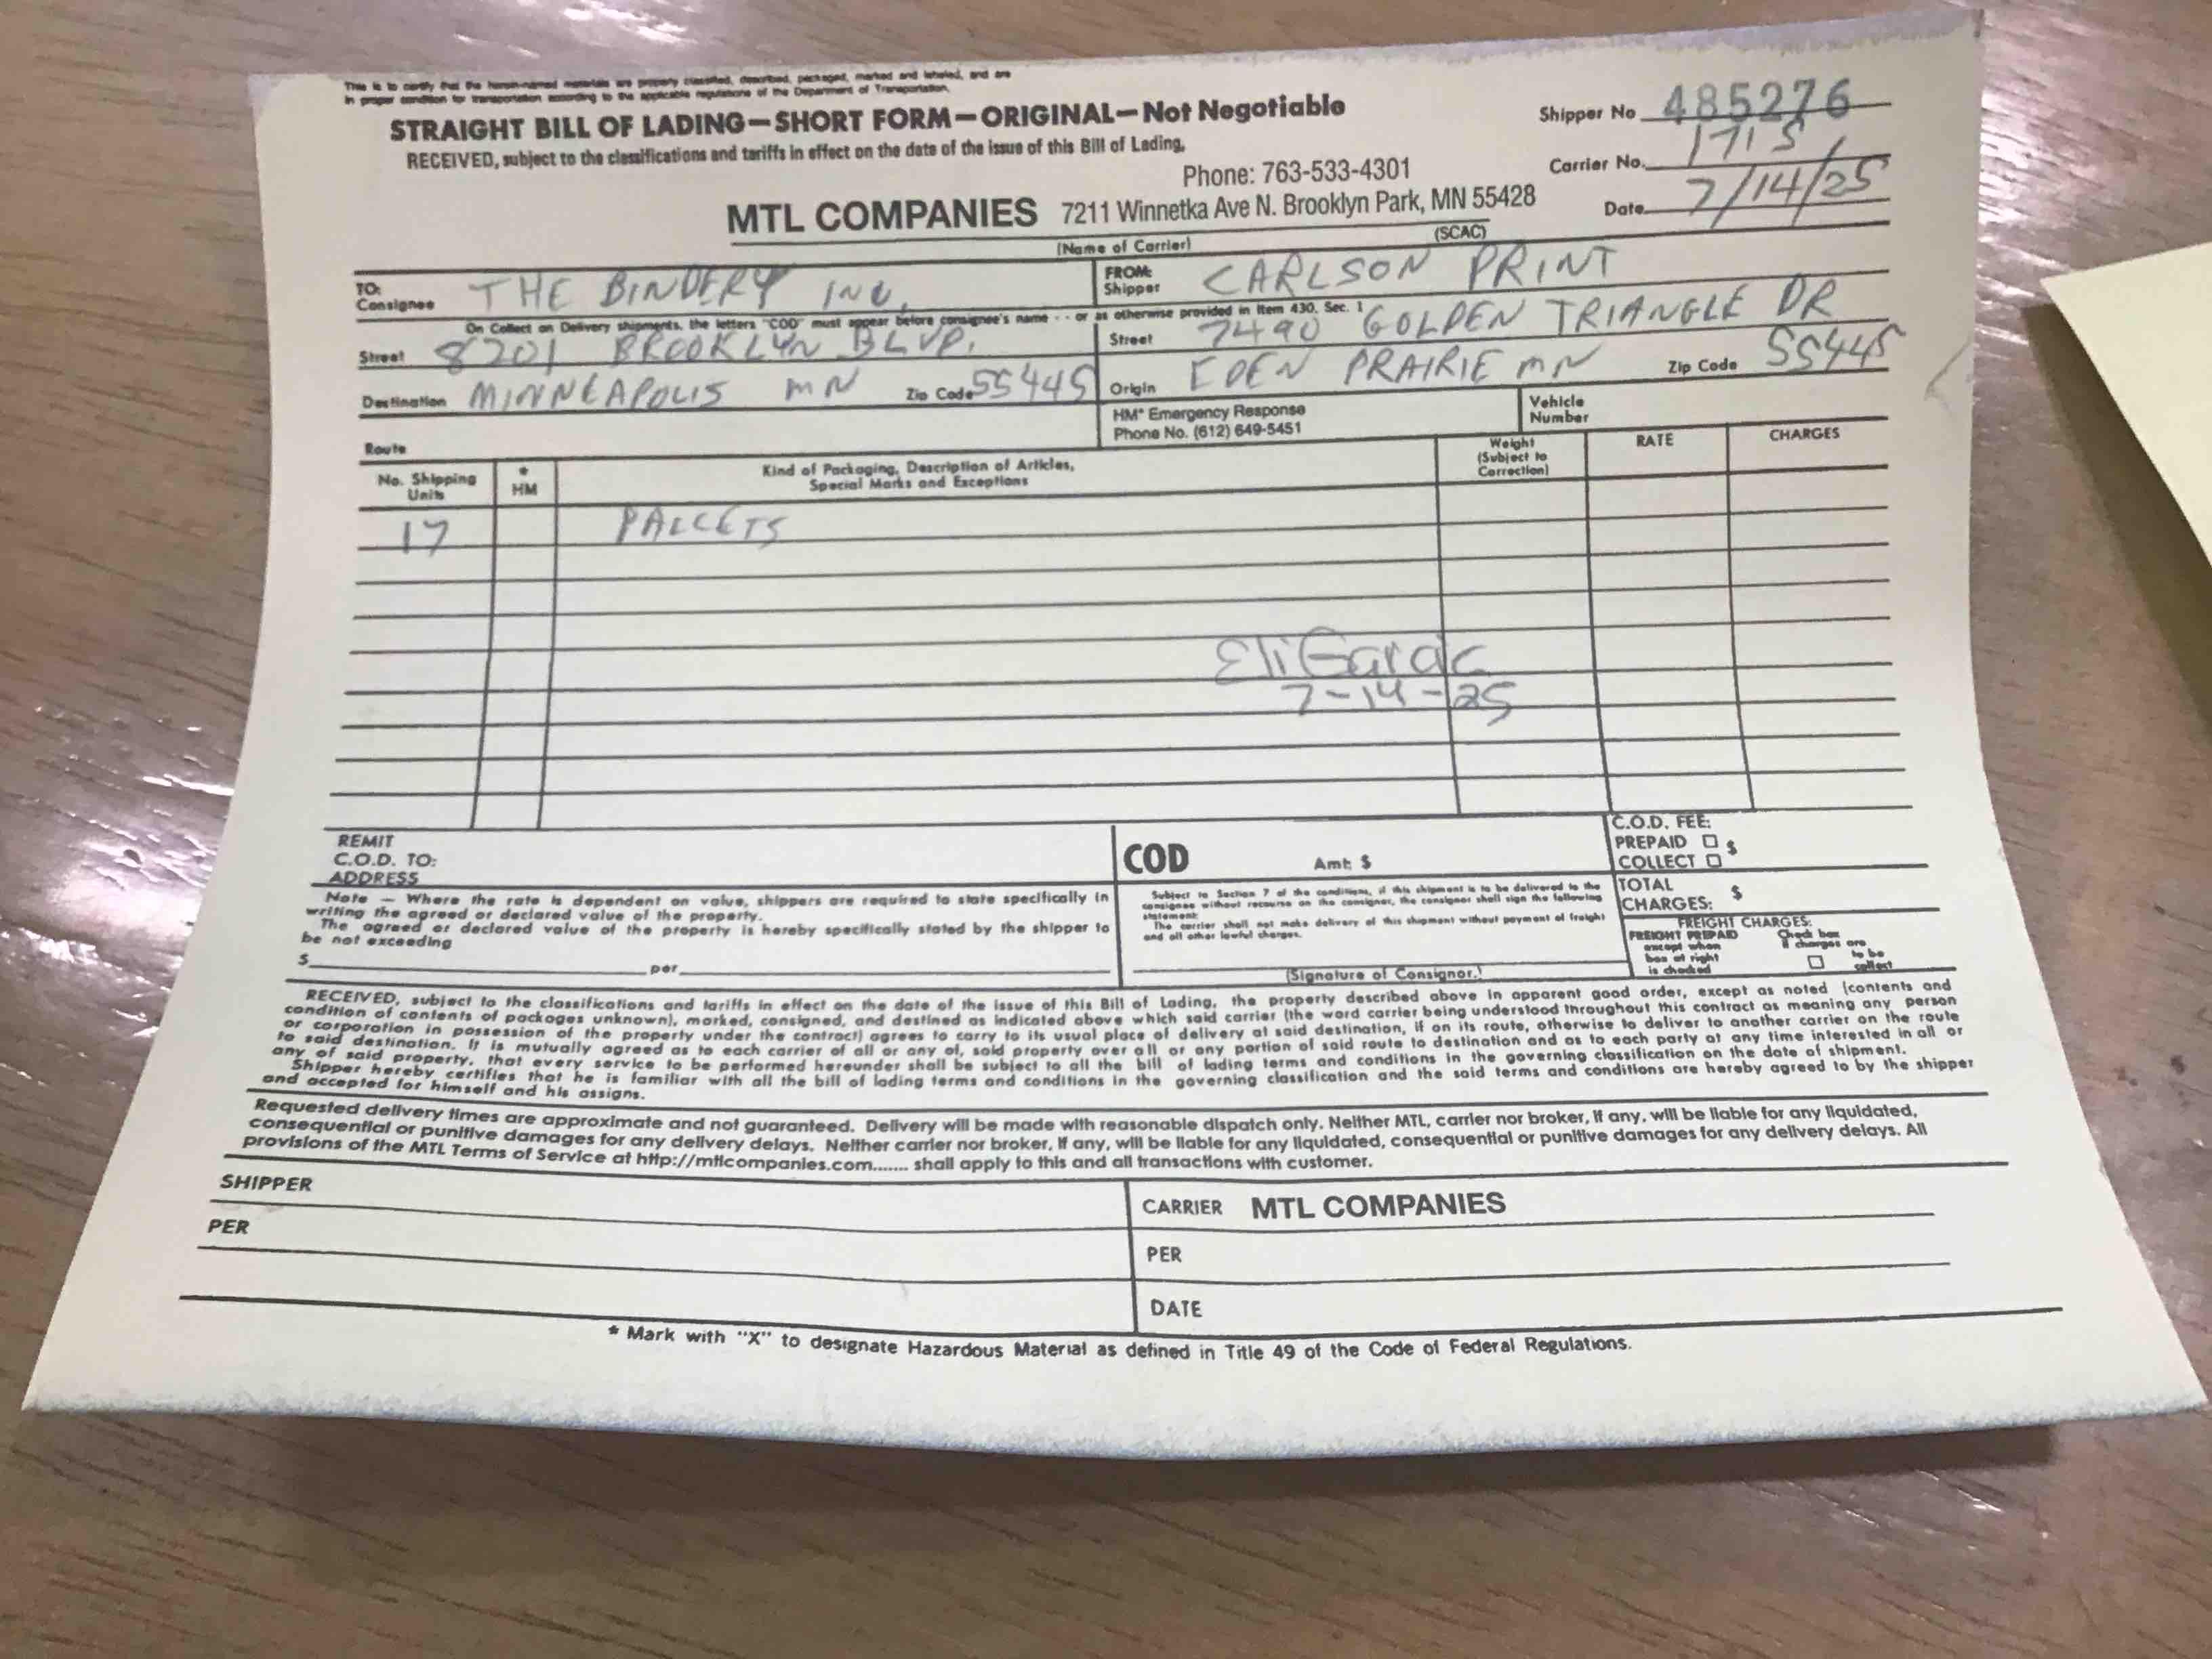 This is to certify that the herein-named materials are properly classified, described, packaged, marked and labeled, and are
in proper condition for transportation according to the applicable regulations of the Department of Transportation.
STRAIGHT BILL OF LADING—SHORT FORM—ORIGINAL—Not Negotiable
RECEIVED, subject to the classifications and tariffs in effect on the date of the issue of this Bill of Lading,
Shipper No 485276
Carrier No. 1715
Date 7/14/25
Phone: 763-533-4301
MTL COMPANIES 7211 Winnetka Ave N. Brooklyn Park, MN 55428
(Name of Carrier) (SCAC)
TO: Consignee THE BINDERY INC.
FROM: Shipper CARLSON PRINT
On Collect on Delivery shipments, the letters "COD" must appear before consignee's name - - or as otherwise provided in Item 430, Sec. 1
Street 8201 BROOKLYN BLVD.
Street 7490 GOLDEN TRIANGLE DR
Destination MINNEAPOLIS MN Zip Code 55445
Origin EDEN PRAIRIE MN Zip Code 55445
Route
HM* Emergency Response
Phone No. (612) 649-5451
Vehicle
Number
No. Shipping
Units
*
HM
Kind of Packaging, Description of Articles,
Special Marks and Exceptions
Weight
(Subject to
Correction)
RATE
CHARGES
17 PALLETS
Eli
7-14-25
REMIT
C.O.D. TO:
ADDRESS
COD Amt: $
C.O.D. FEE:
PREPAID ☐ $
COLLECT ☐
Note — Where the rate is dependent on value, shippers are required to state specifically in
writing the agreed or declared value of the property.
The agreed or declared value of the property is hereby specifically stated by the shipper to
be not exceeding
$ per
Subject to Section 7 of the conditions, if this shipment is to be delivered to the
consignee without recourse on the consignor, the consignor shall sign the following
statement:
The carrier shall not make delivery of this shipment without payment of freight
and all other lawful charges.
(Signature of Consignor.)
TOTAL
CHARGES: $
FREIGHT CHARGES:
FREIGHT PREPAID
except when
box at right
is checked
Check box
if charges are
to be
collect
RECEIVED, subject to the classifications and tariffs in effect on the date of the issue of this Bill of Lading, the property described above in apparent good order, except as noted (contents and
condition of contents of packages unknown), marked, consigned, and destined as indicated above which said carrier (the word carrier being understood throughout this contract as meaning any person
or corporation in possession of the property under the contract) agrees to carry to its usual place of delivery at said destination, if on its route, otherwise to deliver to another carrier on the route
to said destination. It is mutually agreed as to each carrier of all or any of, said property over all or any portion of said route to destination and as to each party at any time interested in all or
any of said property, that every service to be performed hereunder shall be subject to all the bill of lading terms and conditions in the governing classification on the date of shipment.
Shipper hereby certifies that he is familiar with all the bill of lading terms and conditions in the governing classification and the said terms and conditions are hereby agreed to by the shipper
and accepted for himself and his assigns.
Requested delivery times are approximate and not guaranteed. Delivery will be made with reasonable dispatch only. Neither MTL, carrier nor broker, if any, will be liable for any liquidated,
consequential or punitive damages for any delivery delays. Neither carrier nor broker, if any, will be liable for any liquidated, consequential or punitive damages for any delivery delays. All
provisions of the MTL Terms of Service at http://mtlcompanies.com....... shall apply to this and all transactions with customer.
SHIPPER
PER
CARRIER MTL COMPANIES
PER
DATE
* Mark with "X" to designate Hazardous Material as defined in Title 49 of the Code of Federal Regulations.